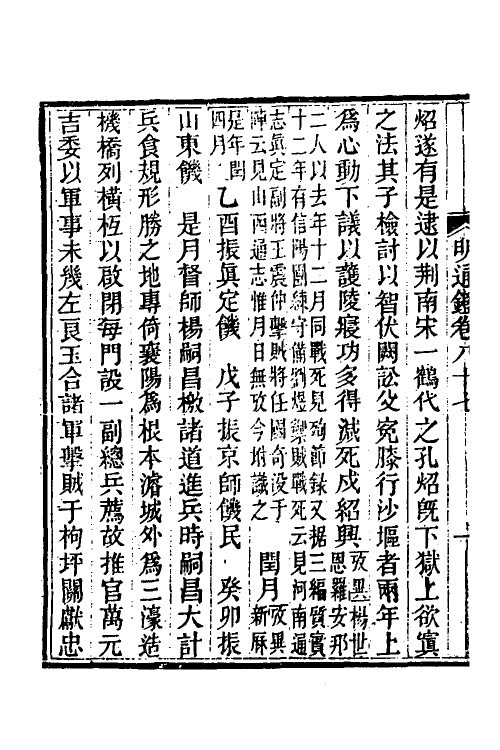 明通鑑卷八十七
炤遂有是逮以荆南宋一鶴代之孔炤旣下獄上欲寘
之法其子檢討以智伏闕訟父寃膝行沙堰者兩年上
爲心動下議以護陵寢功多得減死戍紹興攷異楊世
恩羅安邪
二人以去年十二月同戰死見殉節錄又据三編質實
十二年有信陽團練守備劉煜禦賊戰死云見河南通
志眞定副將王震仲擊賊將任國奇没于
陣云見山西通志惟月日無攷今坿識之
閏月攷異
新厤
是年閏
四月
乙酉振眞定饑　戊子振京師饑民　癸卯振
山東饑　是月督師楊嗣昌檄諸道進兵時嗣昌大計
兵食規形勝之地專倚襄陽爲根本濬城外爲三濠造
機橋列橫枑以啟閉每門設一副總兵薦故推官萬元
吉委以軍事未幾左良玉合諸軍擊賊于枸坪關獻忠